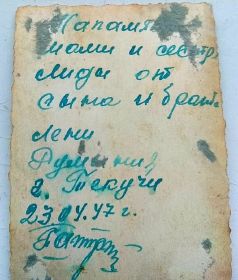 На память
маме и сестре
Лиде от
сына и брата
Лени
Румыния
г. Текучи
23.04.47 г.